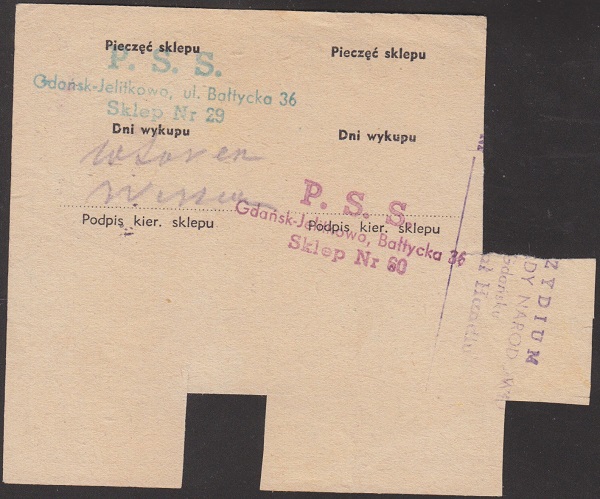 Pieczęć sklepu
P. S. S.
Gdańsk-Jelitkowo, ul. Bałtycka 36
Sklep Nr 29
Dni wykupu
wtorek
Podpis kier. sklepu
Pieczęć sklepu
Dni wykupu
P. S. S.
Gdańsk-Jelitkowo, Bałtycka 36
Podpis kier. sklepu
Sklep Nr 60
ZYDIUM
DY NAROD
Gdańsku